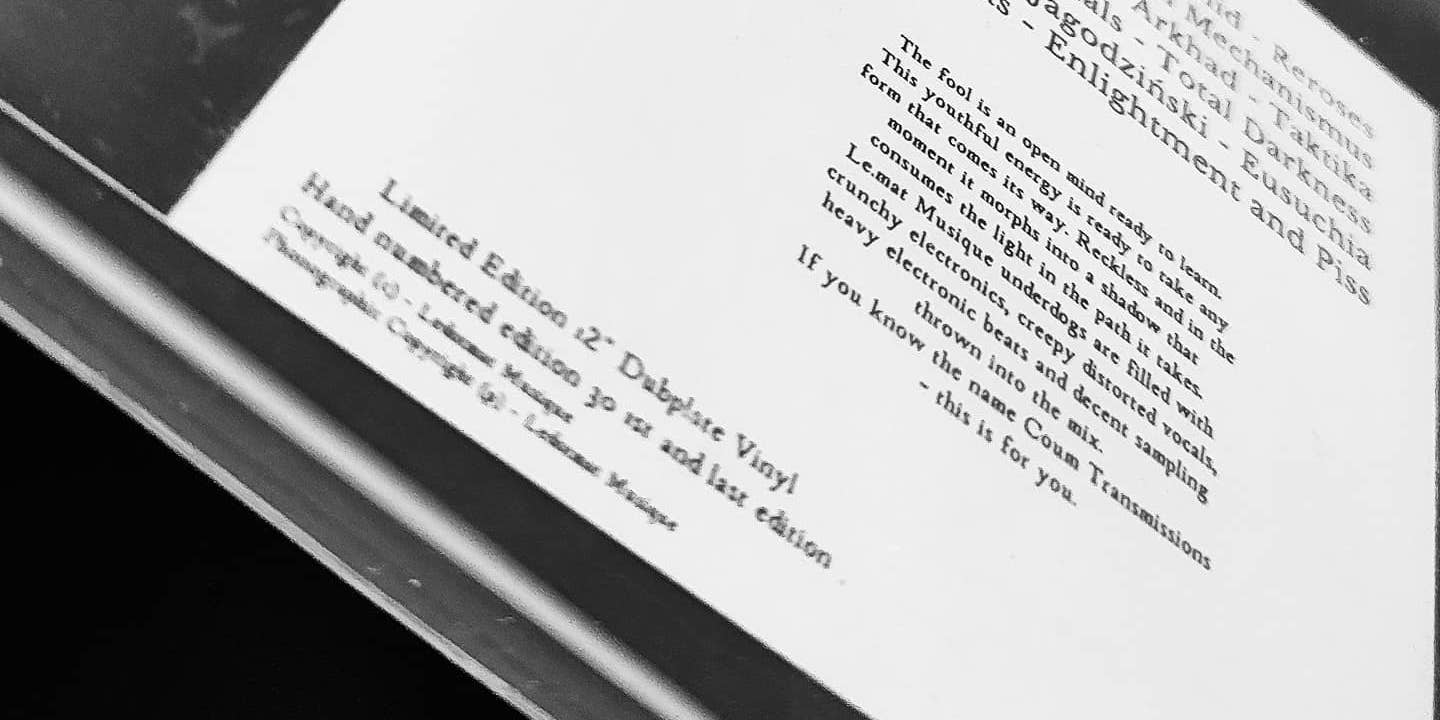 - Reroses
Mechanismus
Arkhad - Taktika
als - Total Darkness
Jagodziński - Eusuchia
- Enlightment and Piss
The fool is an open mind ready to learn.
This youthful energy is ready to take any
form that comes its way. Reckless and in the
moment it morphs into a shadow that
consumes the light in the path it takes.
Le.mat Musique underdogs are filled with
crunchy electronics, creepy distorted vocals,
heavy electronic beats and decent sampling
thrown into the mix.
If you know the name Coum Transmissions
- this is for you.
Limited Edition 12" Dubplate Vinyl
Hand numbered edition 30 1st and last edition
Copyright (c) - Le.mat Musique
Photographic Copyright (p) - Le.mat Musique